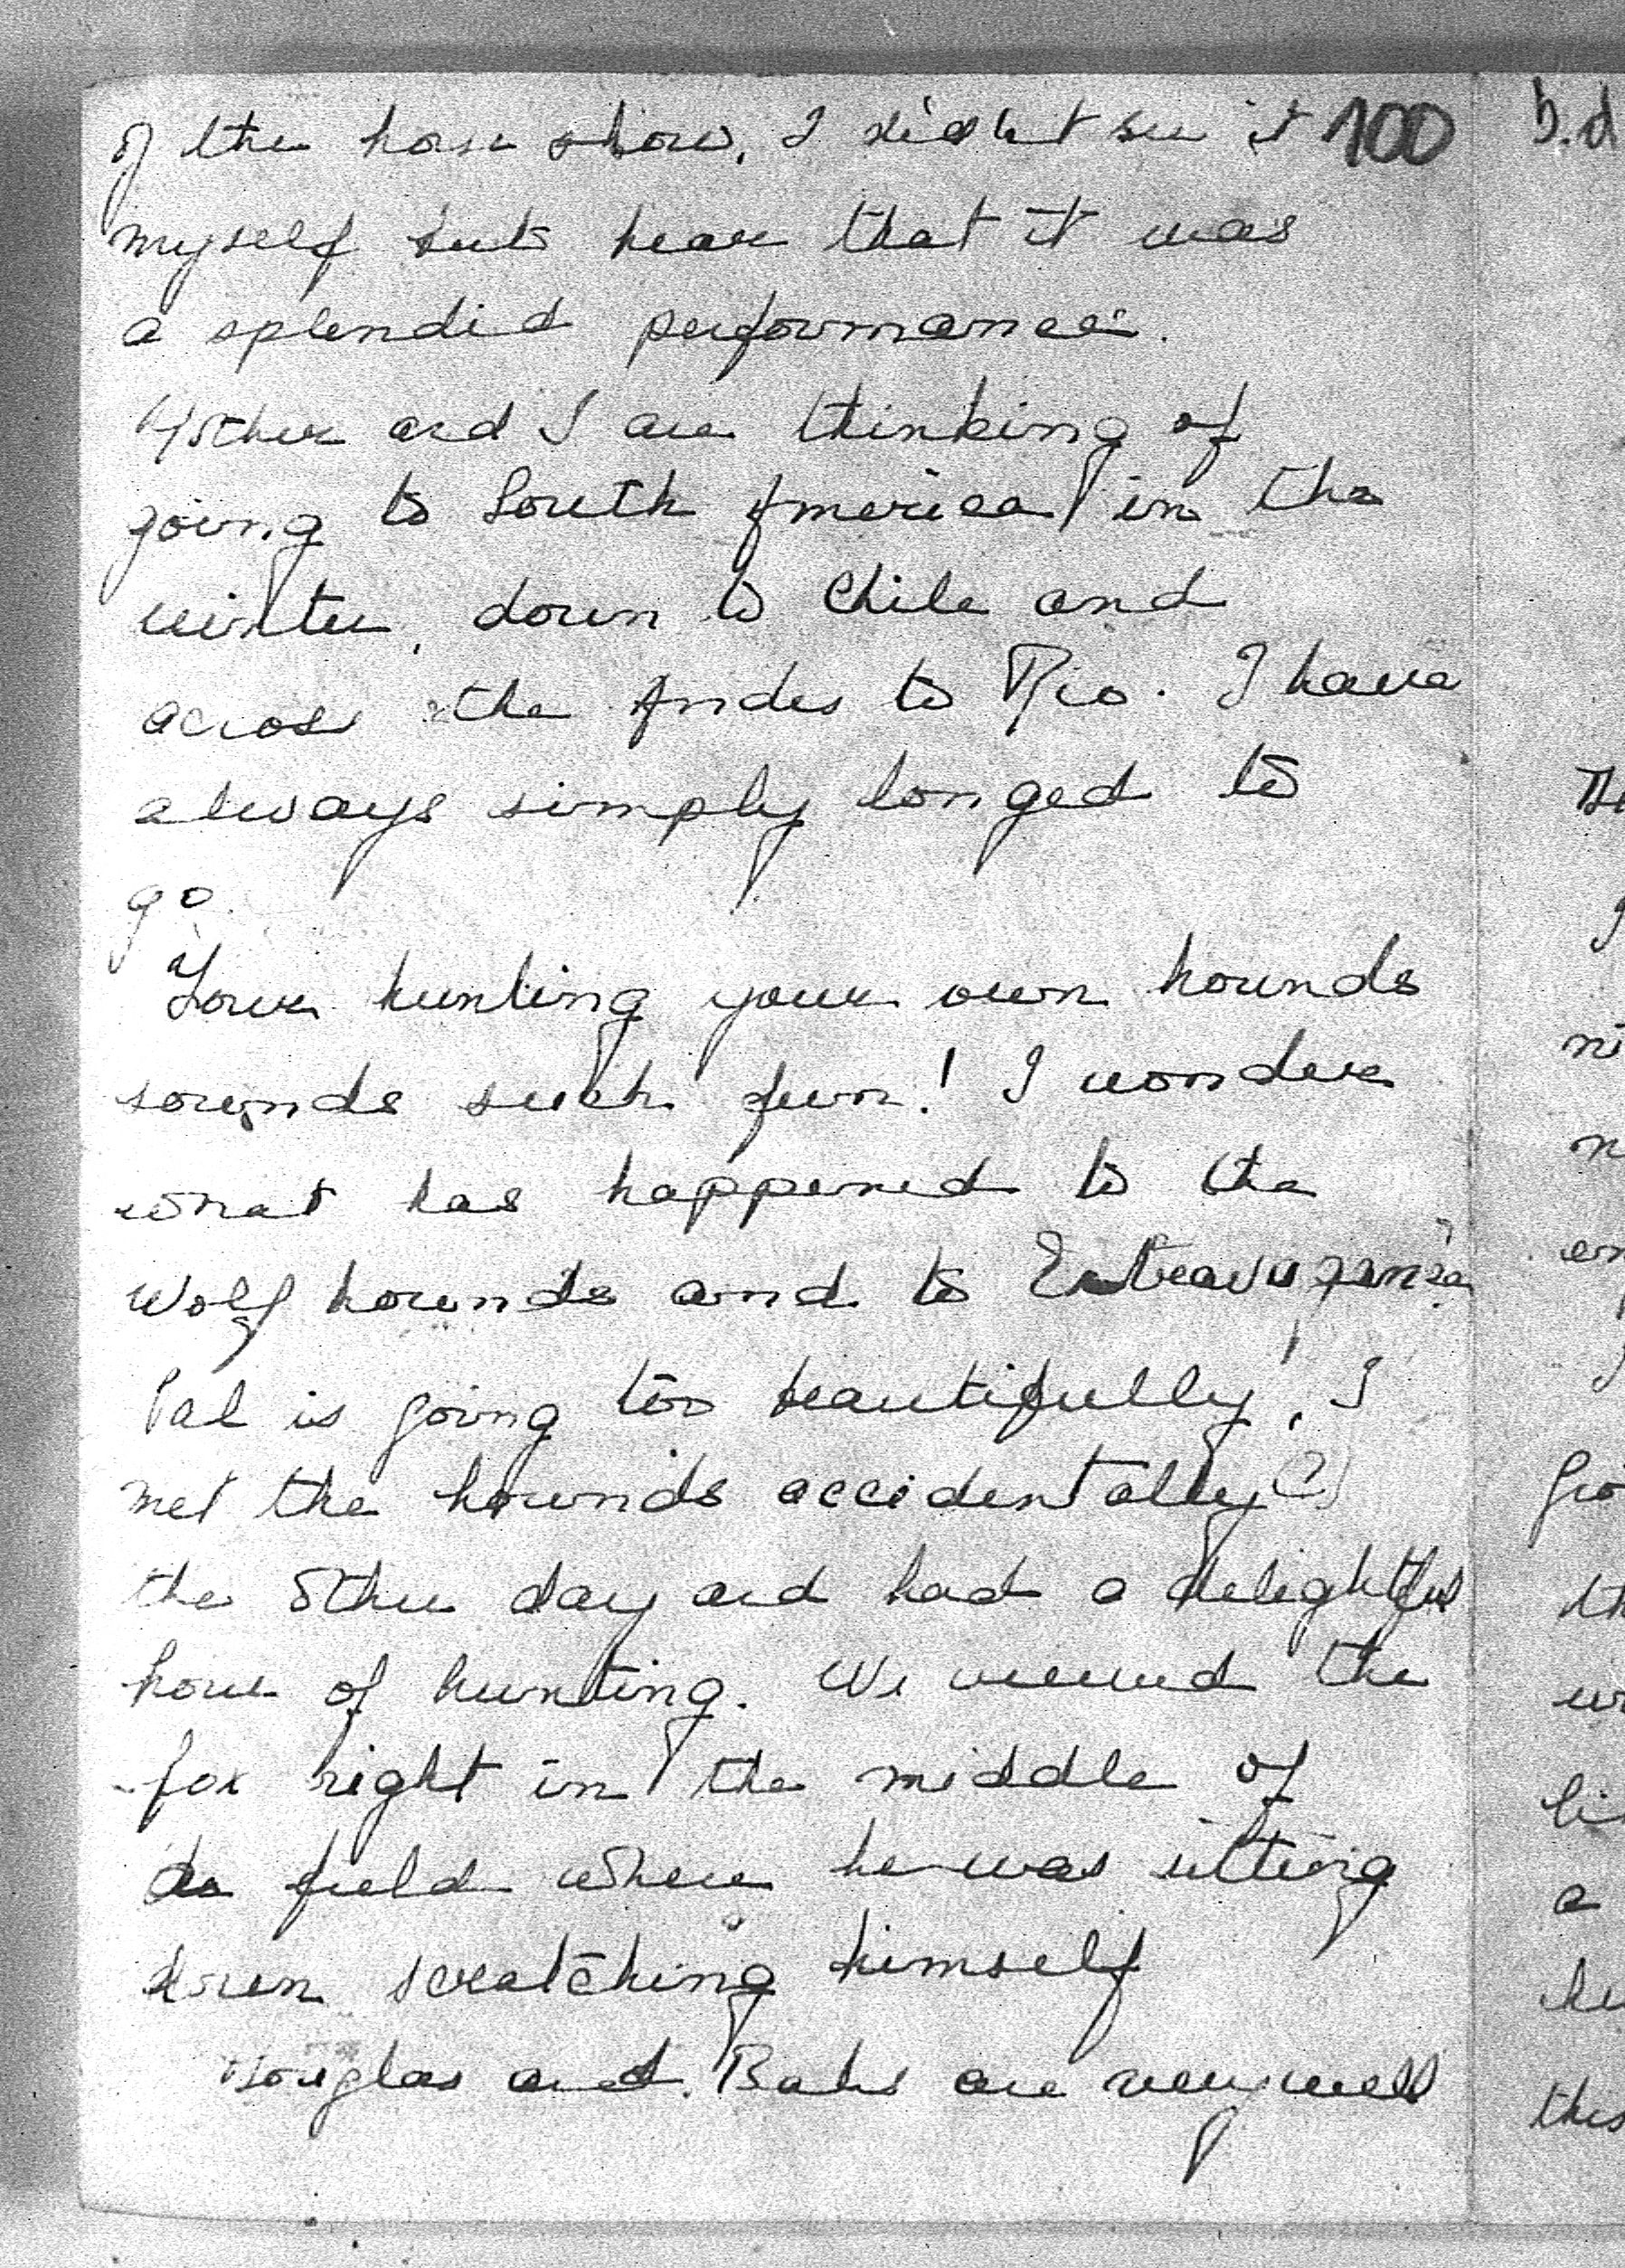 of the horse show, I didn't see it 100
myself but hear that it was
a splendid performance.
Mother and I are thinking of
going to South America in the
winter, down to Chile and
across the Andes to Rio. I have
always simply longed to
go.
Your hunting your own hounds
sounds such fun! I wonder
what has happened to the
Wolf hounds and to Extravaganza
Pal is going too beautifully! I
met the hounds accidentally (?)
the other day and had a delightful
hour of hunting. We viewed the
fox right in the middle of
field where he was sitting
down scratching himself
Douglas and Babs are very well
b.d
this